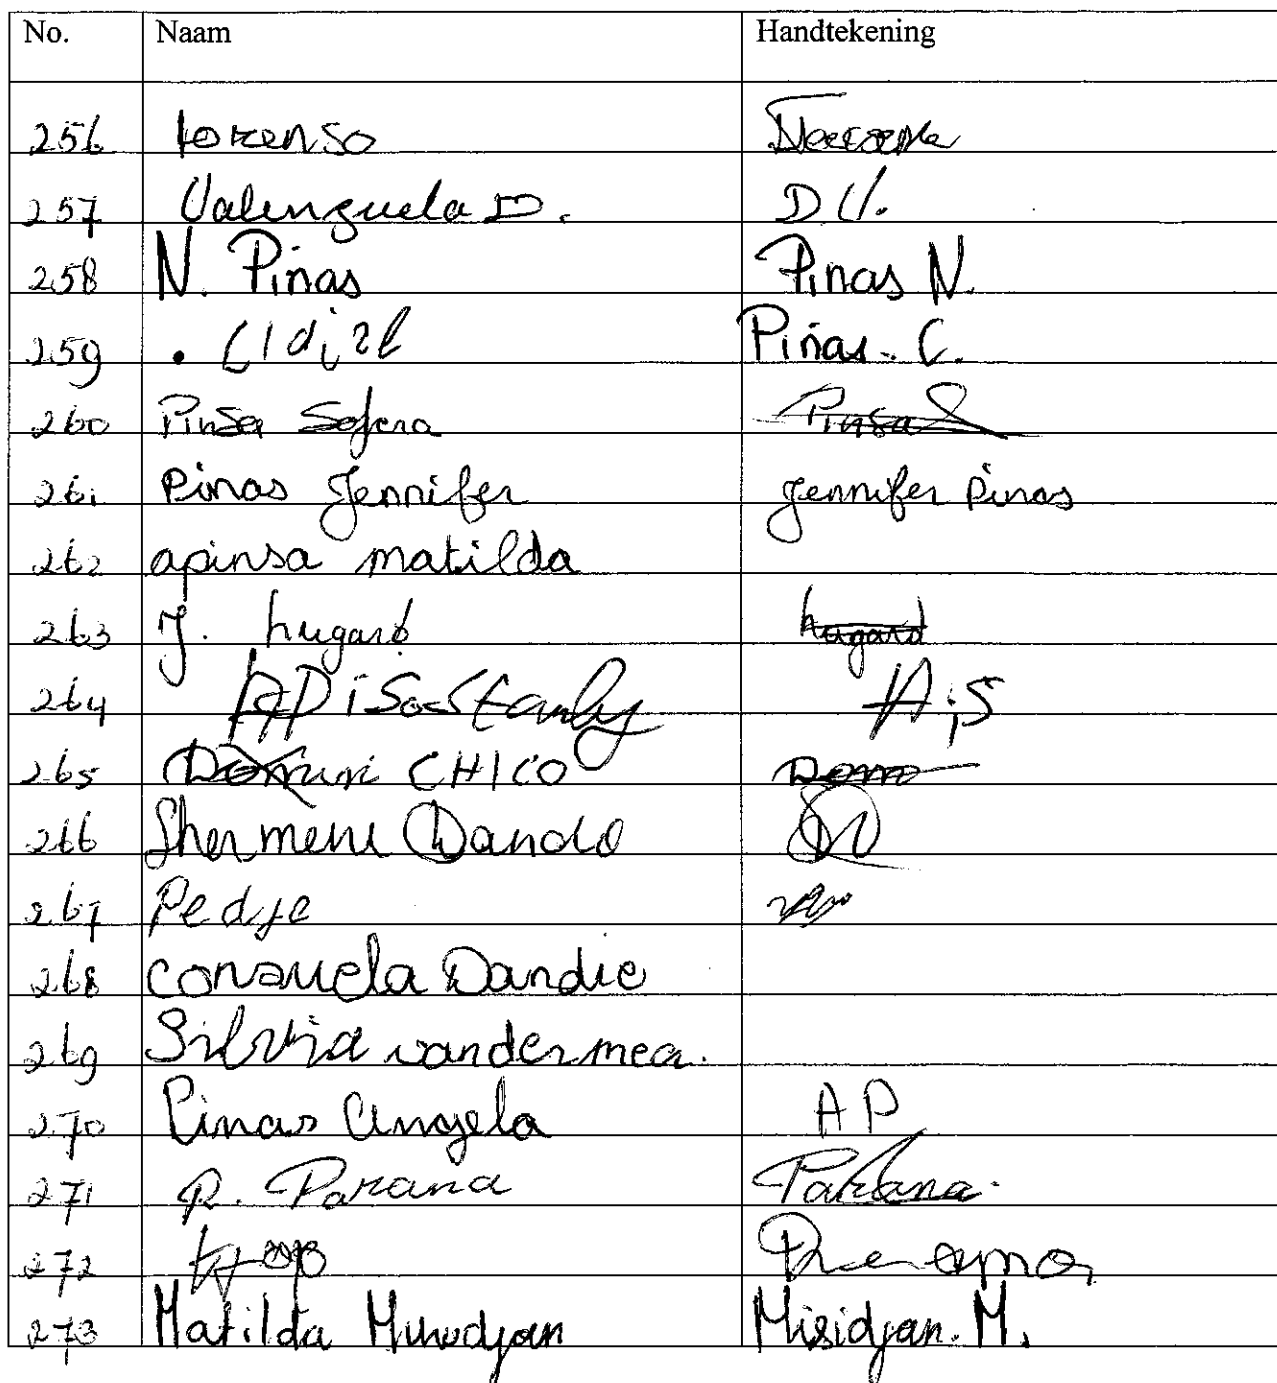 No. Naam Handtekening
256 Lorenso
257 Valenzuela D. D V.
258 N. Pinas Pinas N.
259 Pinas. C.
260 Pinsa Sofena Pinsa
261 Pinas Jennifer Jennifer Pinas
262 apinsa matilda
263 J. hugard hugard
264 A;S
265 CHICO Domo
266 Shermene Dando
267 Pedje
268 consuela Dandie
269 Silvia vandermea.
270 Pinas Angela AP
271 R. Parana Parana.
272
273 Matilda Misidjan Misidjan. M.